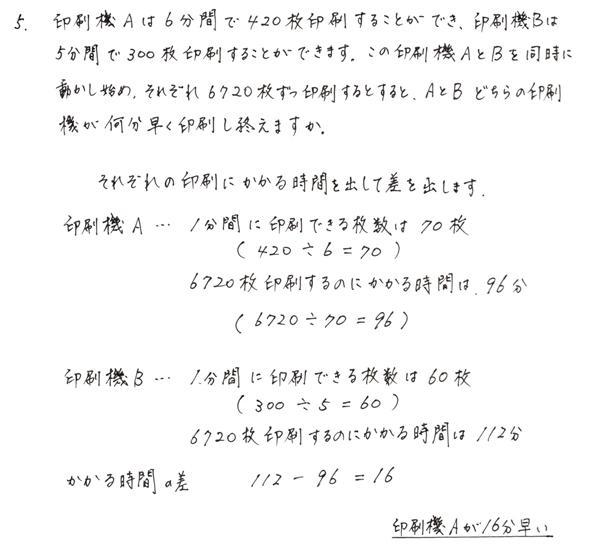 5. 印刷機Aは6分間で420枚印刷することができ、印刷機Bは
5分間で300枚印刷することができます。この印刷機AとBを同時に
動かし始め、それぞれ6720枚ずつ印刷するとすると、AとBどちらの印刷
機が何分早く印刷し終えますか。
それぞれの印刷にかかる時間を出して差を出します。
印刷機A … 1分間に印刷できる枚数は70枚
(420÷6=70)
6720枚印刷するのにかかる時間は、96分
(6720÷70=96)
印刷機B … 1分間に印刷できる枚数は60枚
(300÷5=60)
6720枚印刷するのにかかる時間は112分
かかる時間の差 112-96=16
印刷機Aが16分早い